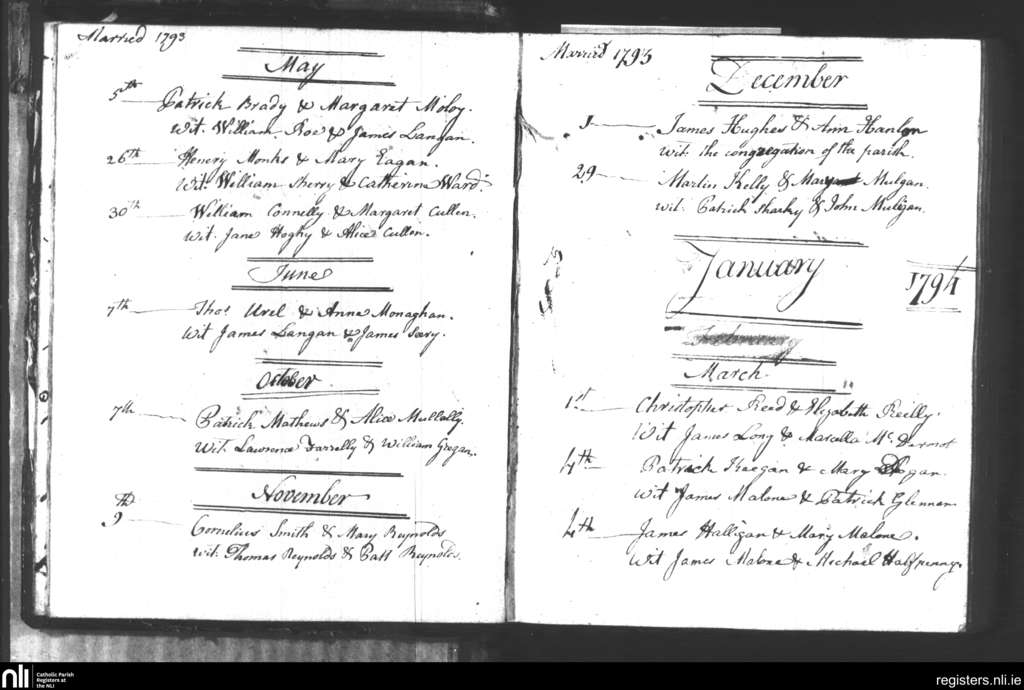 Married 1793
May
5th Patrick Brady & Margaret Moloy.
Wit. William Roe & James Langan.
26th Henery Monks & Mary Eagan.
Wit. William Sherry & Catherine Ward
30th William Connelly & Margaret Cullen.
Wit. Jane Hoghy & Alice Cullen.
June
7th Thos. Urel & Anne Monaghan.
Wit James Langan & James Seery.
October
7th Patrick Mathews & Alice Mullally.
Wit. Lawrence Farrelly & William Gregan.
November
9th Cornelius Smith & Mary Reynolds
Wit. Thomas Reynolds & Patt Reynolds.
Married 1793
December
1 James Hughes & Ann Hanlon
Wit. the congregation of the parish.
29 Martin Kelly & Mulgan.
Wit. Patrick Sharky & John Muligan.
January
1794
February
March
1st Christopher Reed & Elizabeth Reilly.
Wit James Long & Marcella Mc. Dermot
4th Patrick Keegan & Mary
Wit James Malone & Patrick Glennen
4th James Halligan & Mary Malone.
Wit James Malone & Michael Halfpenny.
nli
Catholic Parish
Registers at
the NLI
registers.nli.ie